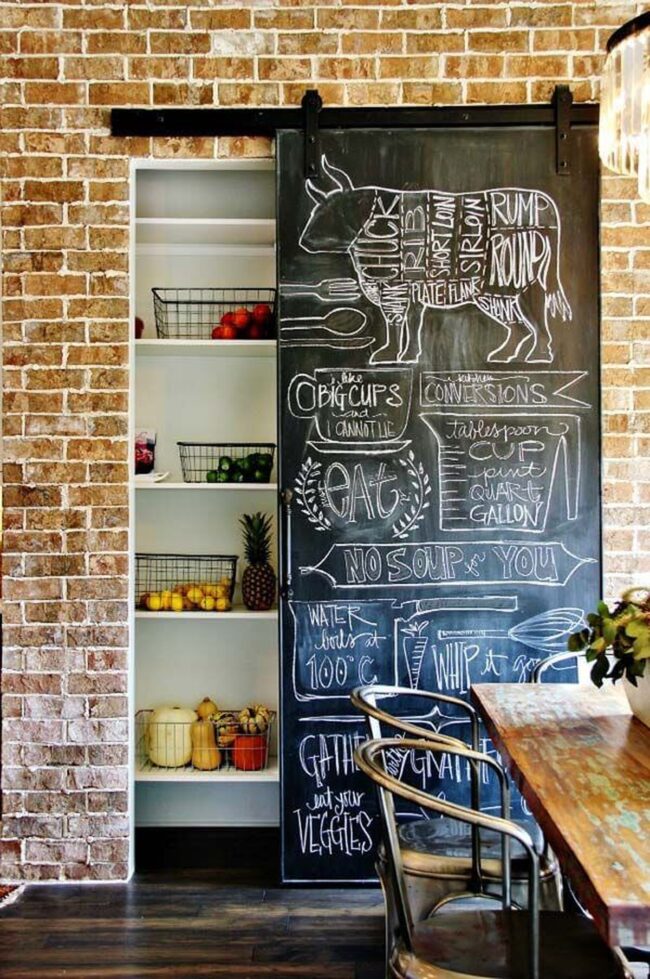 CHUCK RIB SHORT LOIN SIRLOIN RUMP
ROUND
SHANK PLATE FLANK SHANK
i like
BIG CUPS
and
I CANNOT LIE
kitchen
CONVERSIONS
tablespoon
CUP
pint
QUART
GALLON
eat
NO SOUP for YOU
WATER
boils at
100°C
WHIP it
GATHER
eat your
VEGGIES